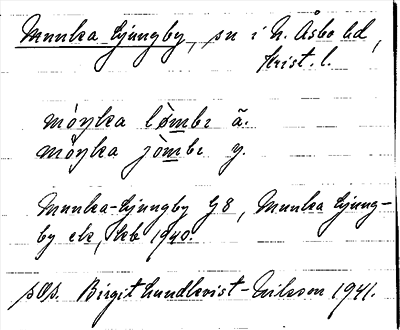 Munka Ljungby, sn i N. Åsbo hd,
Krist. l.
móŋka lòmbı ä.
mòŋka jòmbı y.
Munka-Ljungby G8, Munka Ljung-
by ek, kb 1940.
Birgit Lundkvist-Nilsson 1941.